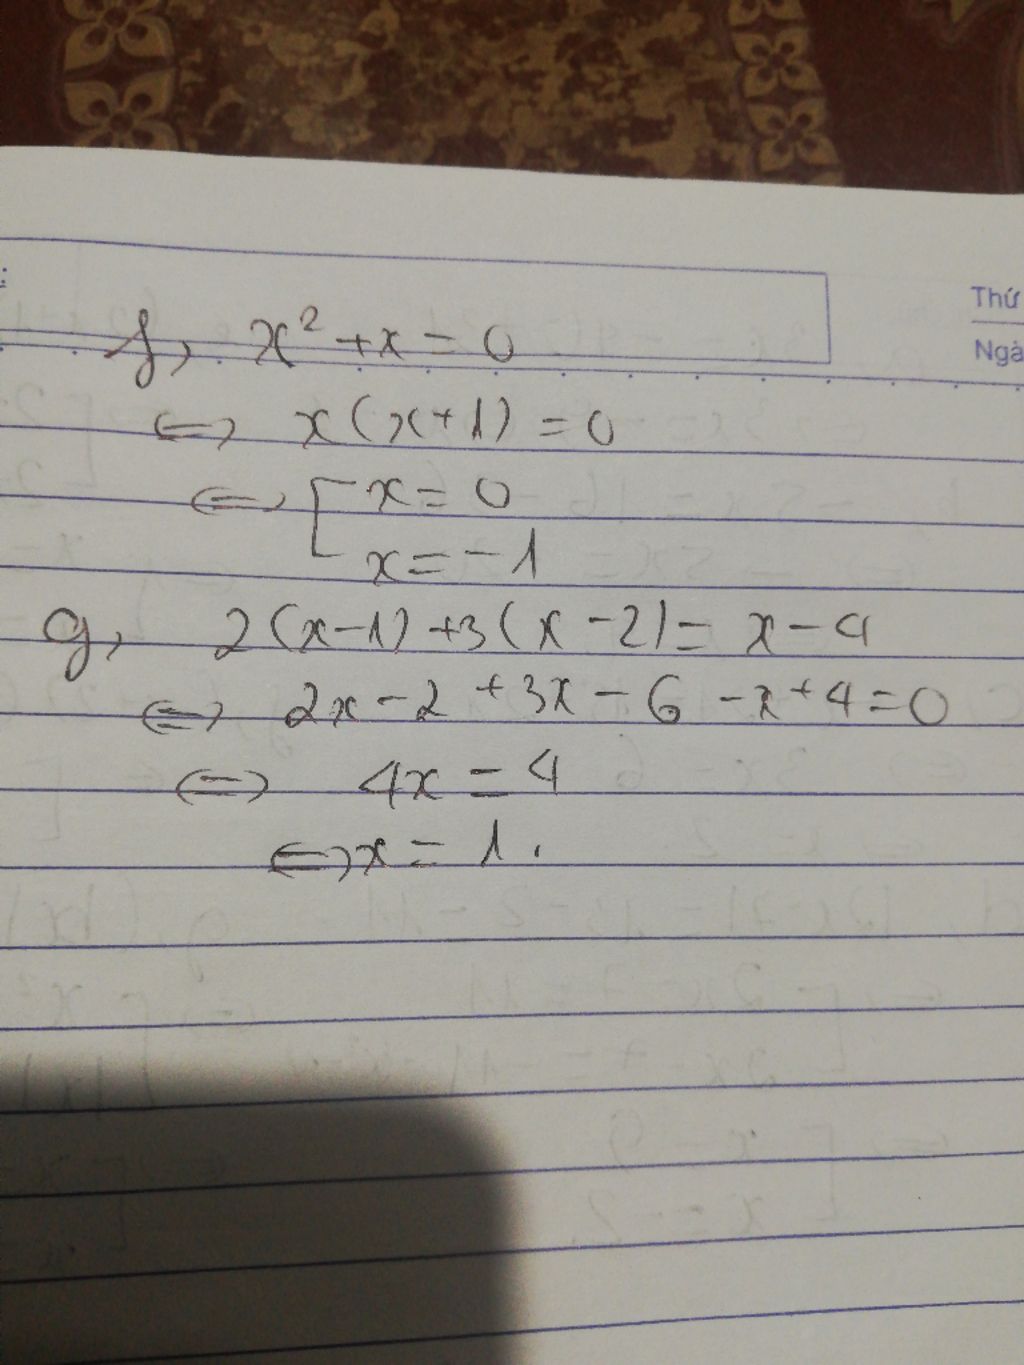 Thứ
Ngà
f, x² + x = 0
⇔ x(x+1) = 0
⇔ [ x = 0
x = -1
g, 2(x-1) + 3(x-2) = x - 4
⇔ 2x - 2 + 3x - 6 - x + 4 = 0
⇔ 4x = 4
⇔ x = 1.